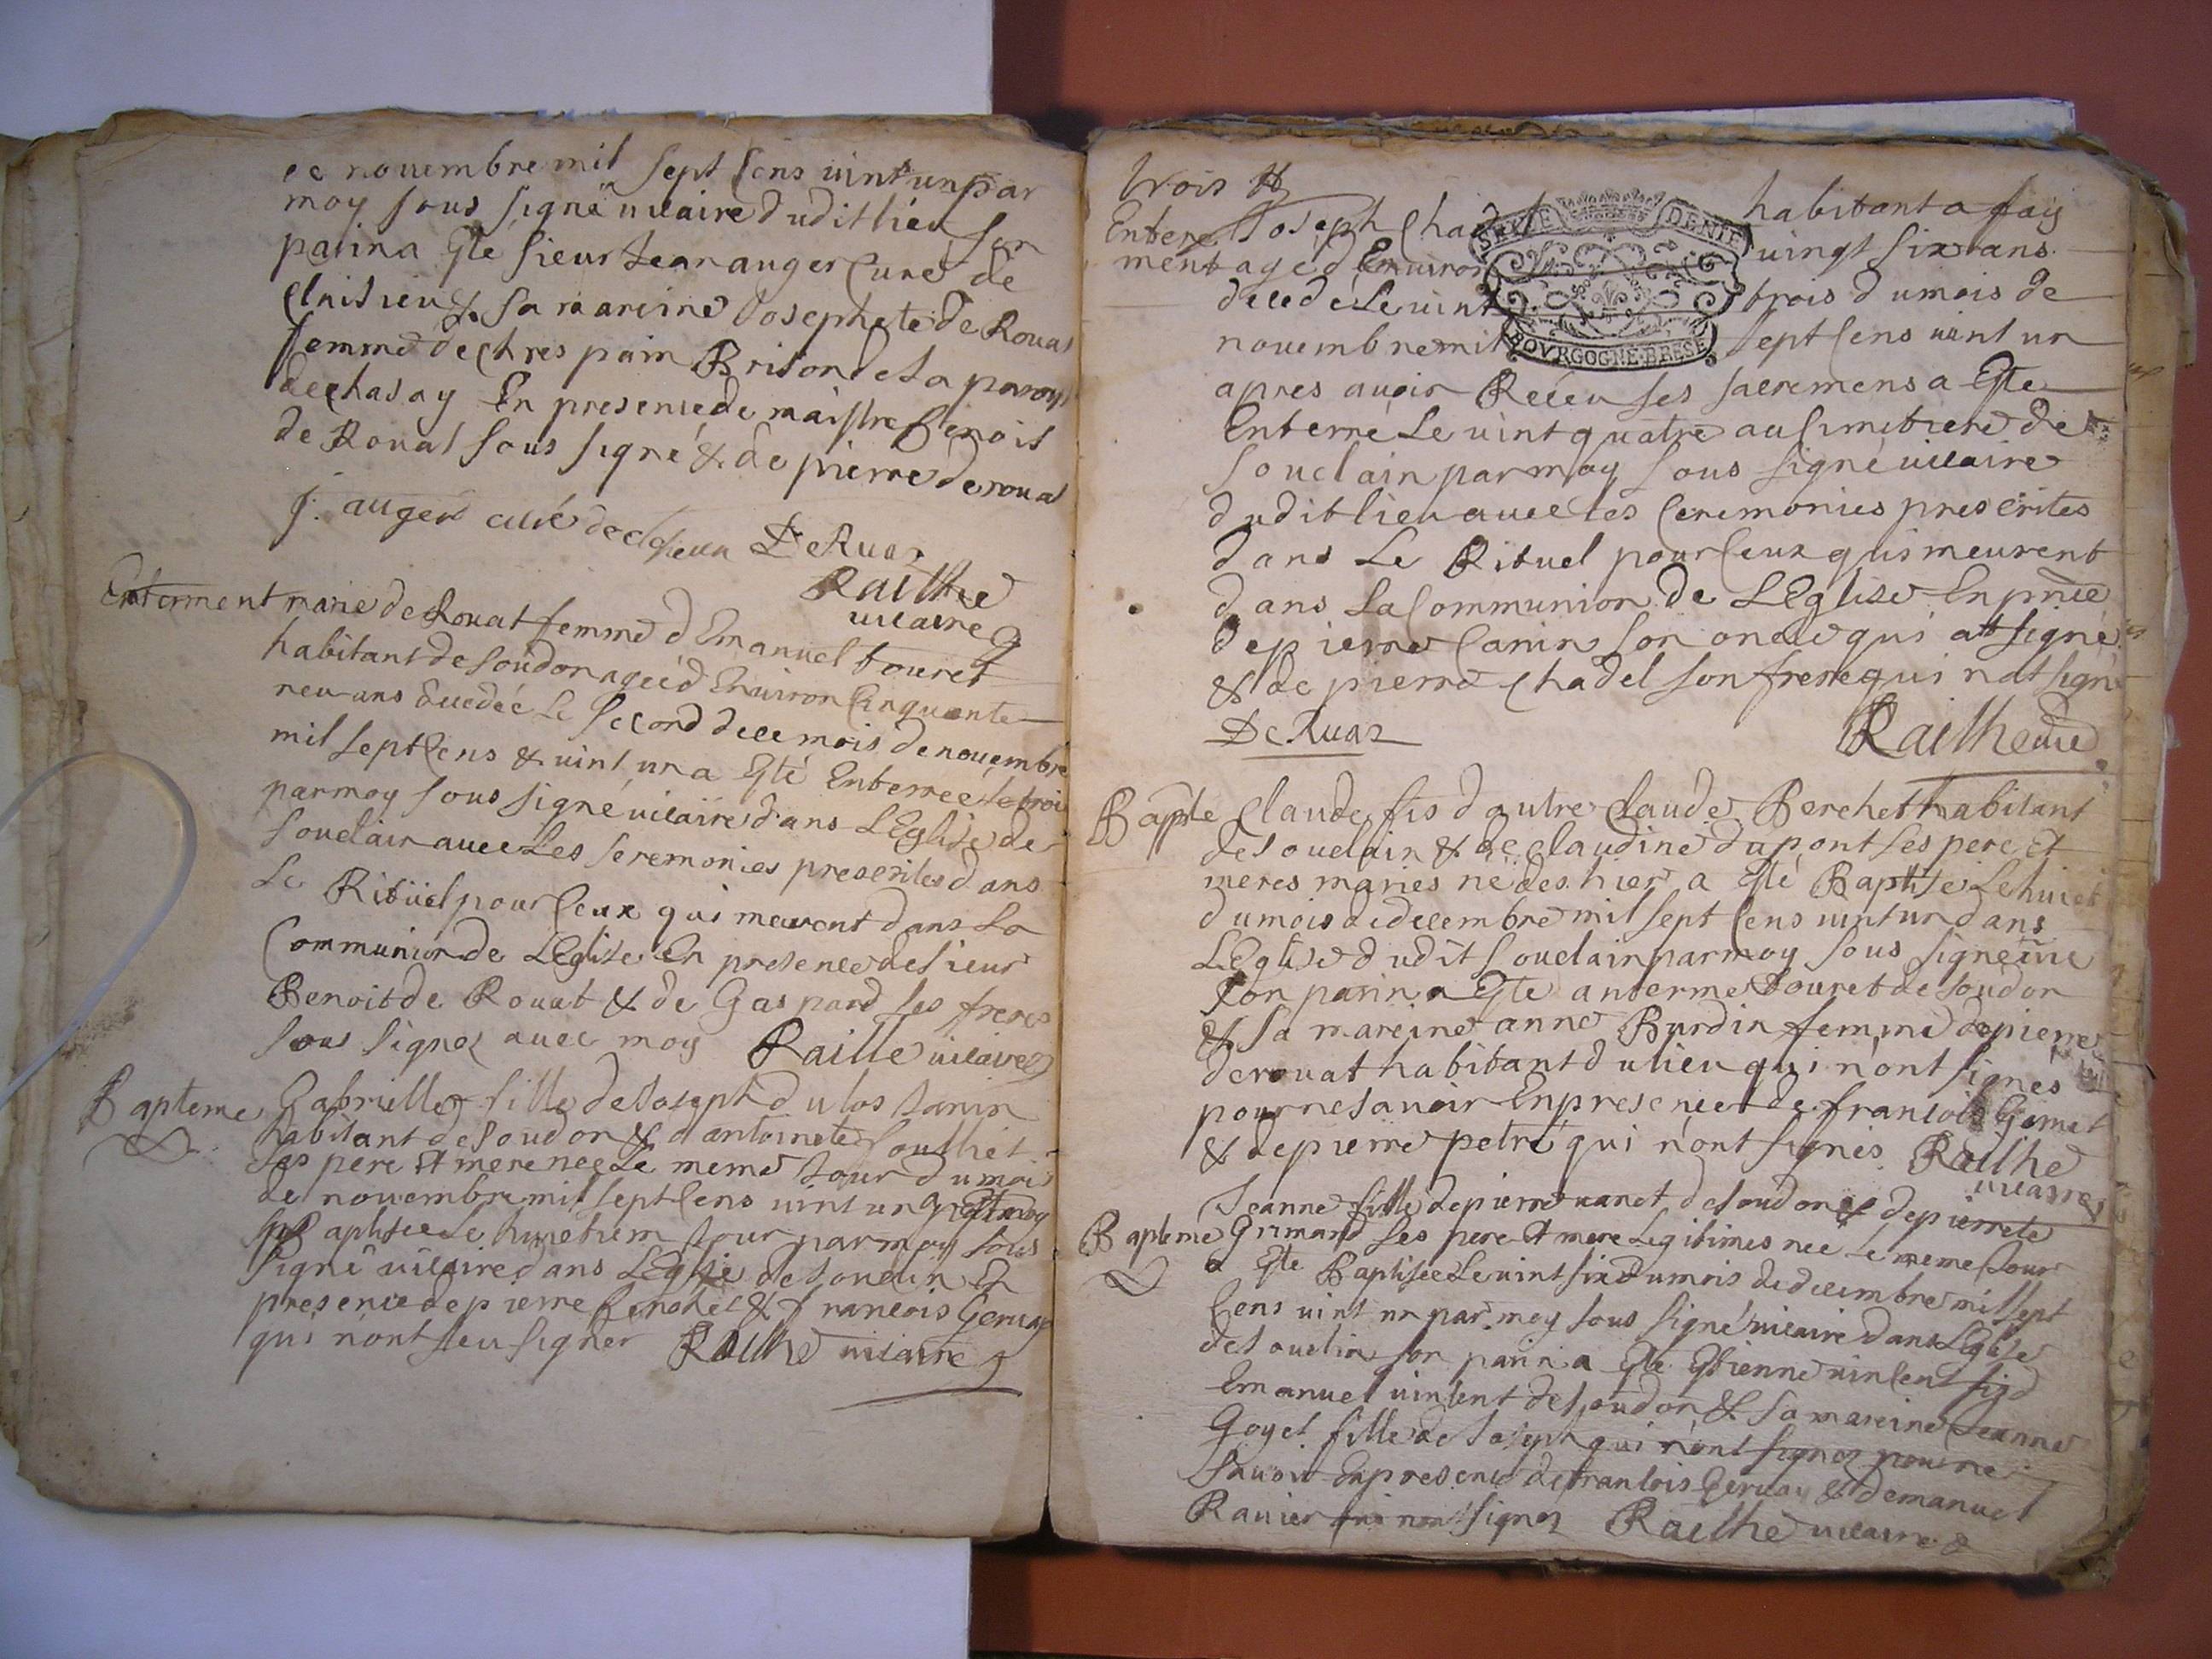 ce nouembre mil sept cens uint un par
moy sous signé uicaire dudit lieu son
parin a esté sieur Jean auger Curé de
& sa mareine Josephete de Rouat
femme de Brison de la paroys
de chasay En presence de maistre Benoit
de Rouat sous signé & de pierre de rouat
J. auger curé de De Ruaz
Railhe
uicaire
Enterment marie de Rouat femme d Emanuel touret
habitant de soudon ageé d Enuiron Cinquante
neu ans decedeé le second de ce mois de nouembre
mil sept cens & uint un a Esté Enterreé le trois
par moy sous signé uicaire dans L'Eglise de
souclain auec les seremonies prescrites dans
Le Rituel pour ceux qui meurent dans La
Communion de L'Eglise En presence de sieur
Benoit de Rouat & de Gaspard ses freres
sous signez auec moy Railhe uicaire
Bapteme Gabrielle fille de Joseph
habitant de soudon & d antoinete
ses pere et mere neé Le meme Jour du mois
de nouembre mil sept cens uint un
Baptiseé Le Jour par moy sous
signé uicaire dans L'Eglise de souclin En
presence de pierre & francois Geruay
qui n'ont sceu signer Railhe uicaire
trois
Entere Joseph Chadel habitant a fay
ment agé d Enuiron uingt six ans
decedé Le uint trois du mois de
nouembre mil sept cens uint un
apres auoir Receu ses sacremens a Esté
Enterré Le uint quatre au simetiere de
souclain par moy sous signé uicaire
dudit lieu auec les Ceremonies prescrites
dans Le Rituel pour Ceux qui meurent
dans La Communion de L'Eglise En pnce
de pierre Canin son oncle qui at signé
& de pierre Chadel son frere qui nat signé
De Ruaz Railhe uic
Bapte Claude fis d autre Claude Berchet habitant
de souclain & de Claudine dupont ses pere et
meres mariés né des hier a esté Baptisé Le huict
du mois de decembre mil sept cens uint un dans
L'Eglise dudit souclain par moy sous signé uic
son parin a Esté anterme touret de soudon
& sa mareine anne Burdin femme de pierre
derouat habitant du lieu qui n'ont signés
pour ne sauoir En presence de francois
& de pierre petre qui n'ont signés Railhe
uicaire
Jeanne fille de pierre de soudon & de pierrete
Bapteme Grimand ses pere et mere Legitimes neé Le meme Jour
a Esté Baptiseé Le uint six du mois de decembre mil sept
cens uint un par moy sous signé uicaire dans L'Eglise
de souclin son parin a Esté Estienne uincent fis d
Emanuel uincent de soudon & sa mareine Jeanne
Goyet fille de Joseph qui n'ont signez pour ne
sauoir En presence de francois Geruay & demanuel
Rauier qui n'ont signez Railhe uicaire
SEXIE DENIER
BOVRGOGNE·BRESE